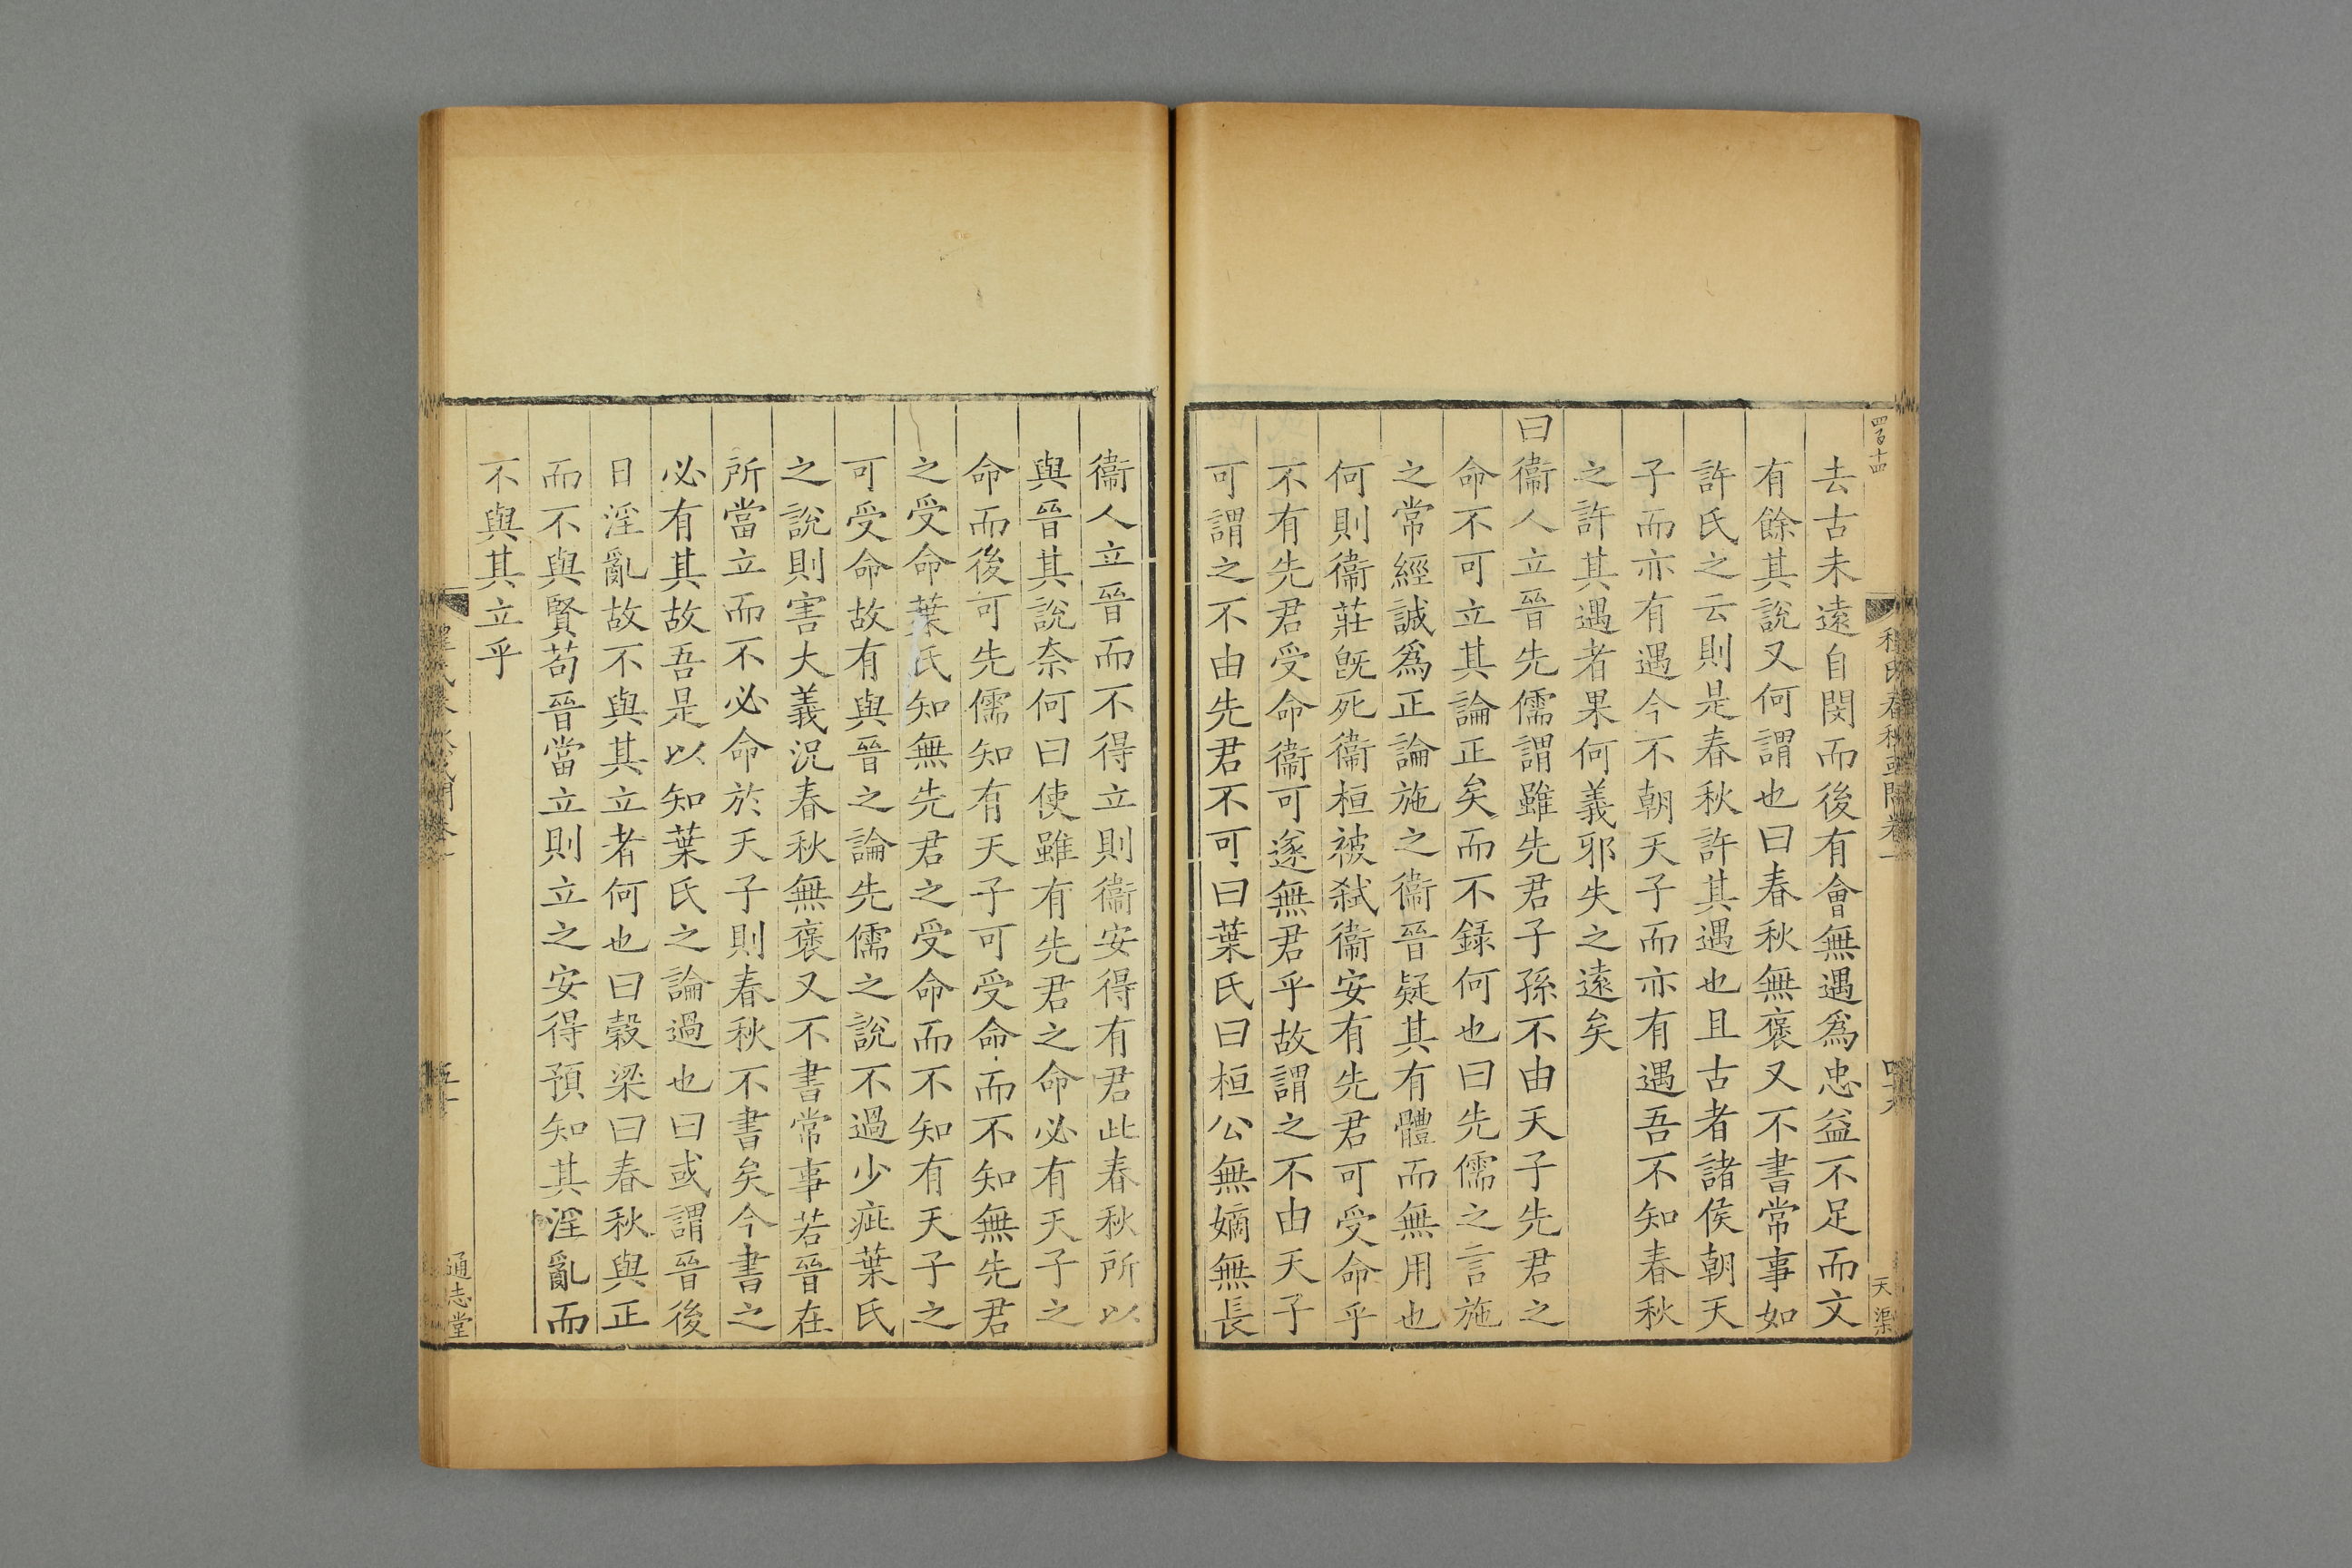 四百十四
程氏春秋或問卷一
天渠
去古未遠自閔而後有會無遇爲忠益不足而文
有餘其說又何謂也曰春秋無襃又不書常事如
許氏之云則是春秋許其遇也且古者諸侯朝天
子而亦有遇今不朝天子而亦有遇吾不知春秋
之許其遇者果何義邪失之遠矣
曰衞人立晉先儒謂雖先君子孫不由天子先君之
命不可立其論正矣而不錄何也曰先儒之言施
之常經誠爲正論施之衞晉疑其有體而無用也
何則衞莊旣死衞桓被弒衞安有先君可受命乎
不有先君受命衞可遂無君乎故謂之不由天子
可謂之不由先君不可曰葉氏曰桓公無嫡無長
衞人立晉而不得立則衞安得有君此春秋所以
與晉其說奈何曰使雖有先君之命必有天子之
命而後可先儒知有天子可受命而不知無先君
之受命葉氏知無先君之受命而不知有天子之
可受命故有與晉之論先儒之說不過少疵葉氏
之說則害大義況春秋無襃又不書常事若晉在
所當立而不必命於天子則春秋不書矣今書之
必有其故吾是以知葉氏之論過也曰或謂晉後
日淫亂故不與其立者何也曰榖梁曰春秋與正
而不與賢苟晉當立則立之安得預知其淫亂而
不與其立乎
通志堂